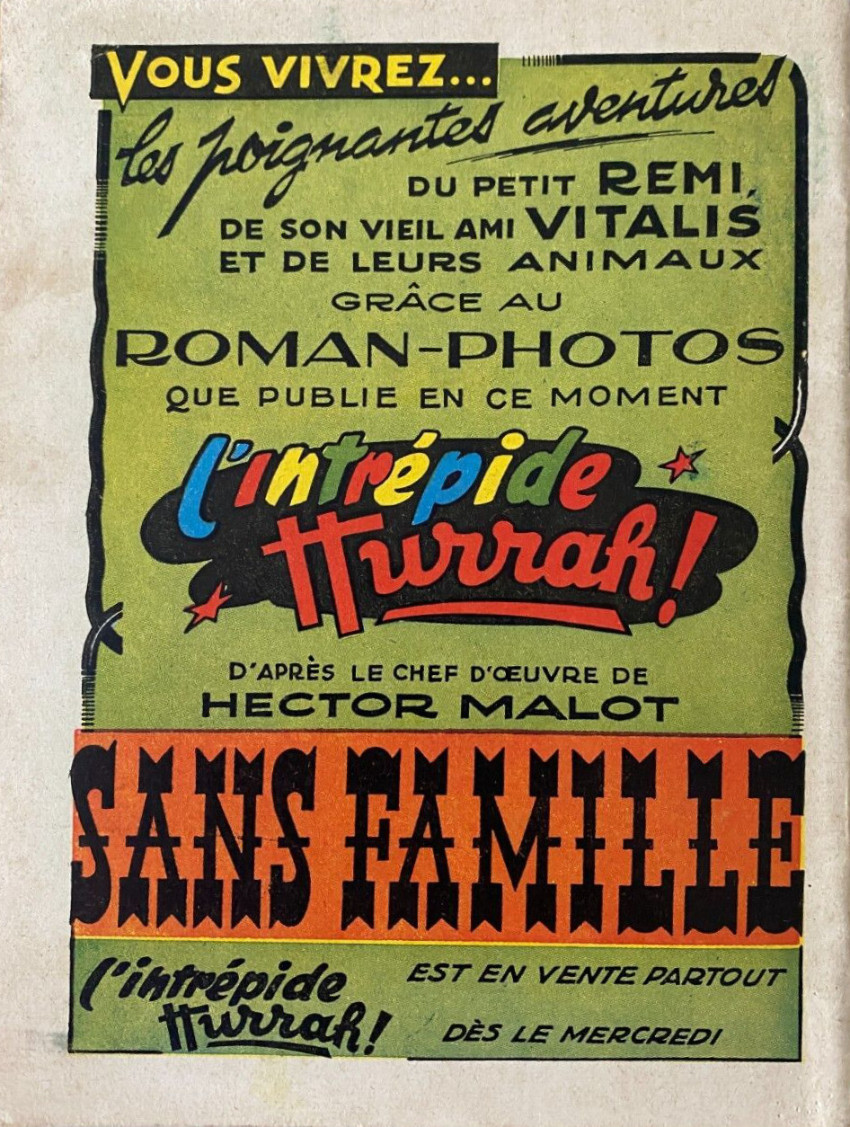 VOUS VIVREZ...
les poignantes aventures
DU PETIT REMI,
DE SON VIEIL AMI VITALIS
ET DE LEURS ANIMAUX
GRÂCE AU
ROMAN-PHOTOS
QUE PUBLIE EN CE MOMENT
l'intrépide
Hurrah!
D'APRÈS LE CHEF D'ŒUVRE DE
HECTOR MALOT
SANS FAMILLE
l'intrépide
Hurrah!
EST EN VENTE PARTOUT
DÈS LE MERCREDI